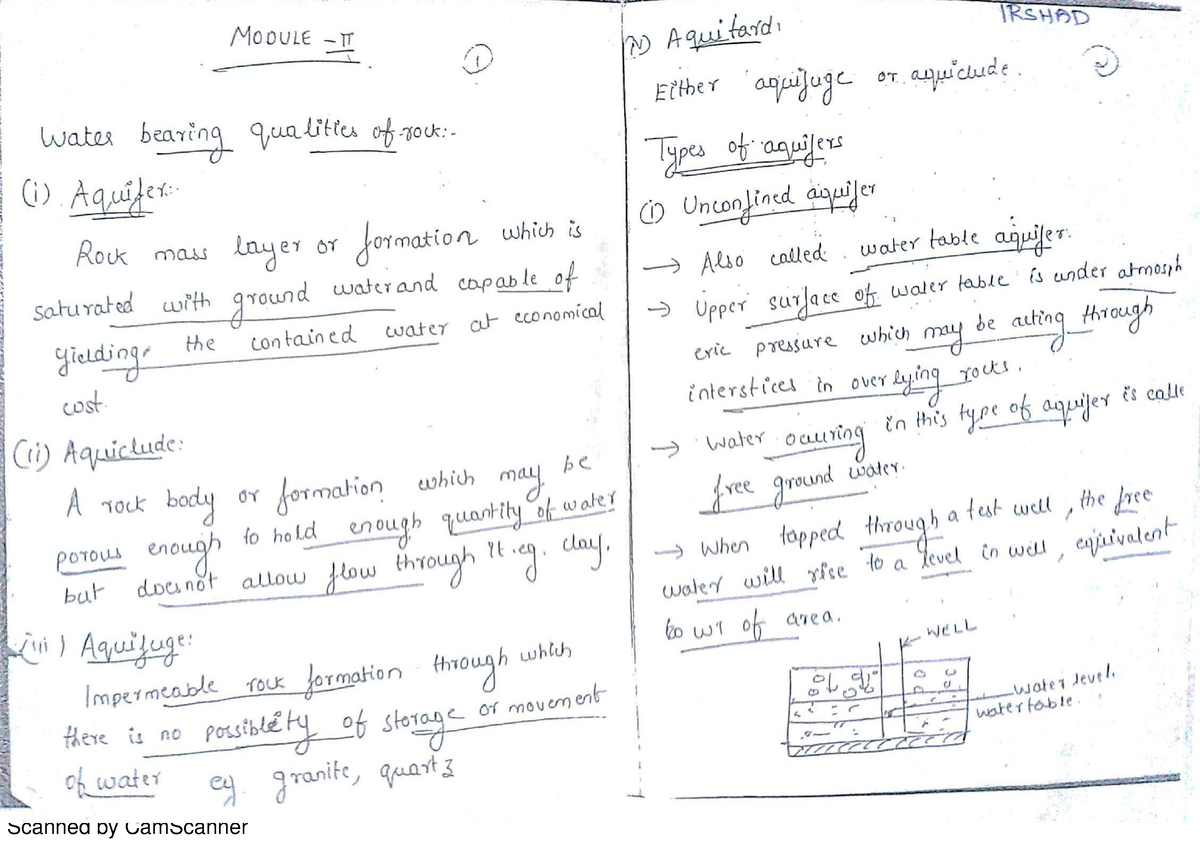 MODULE - II
1
Water bearing qualities of rock:-
(i) Aquifer:-
Rock mass layer or formation which is
saturated with ground water and capable of
yielding the contained water at economical
cost.
(ii) Aquiclude:
A rock body or formation which may be
porous enough to hold enough quantity of water
but doesnot allow flow through it. eg. clay.
(iii) Aquifuge:
Impermeable rock formation through which
there is no possiblety of storage or movement
of water eg. granite, quartz
IRSHAD
2
iv) Aquitard:
Either aquifuge or aquiclude.
Types of aquifers
(i) Unconfined aquifer
→ Also called water table aquifer.
→ Upper surface of water table is under atmosph
eric pressure which may be acting through
interstices in overlying rocks.
→ Water occuring in this type of aquifer is calle
free ground water.
→ When tapped through a test well, the free
water will rise to a level in well, equivalent
to WT of area.
WELL
water level.
water table.
Scanned by CamScanner